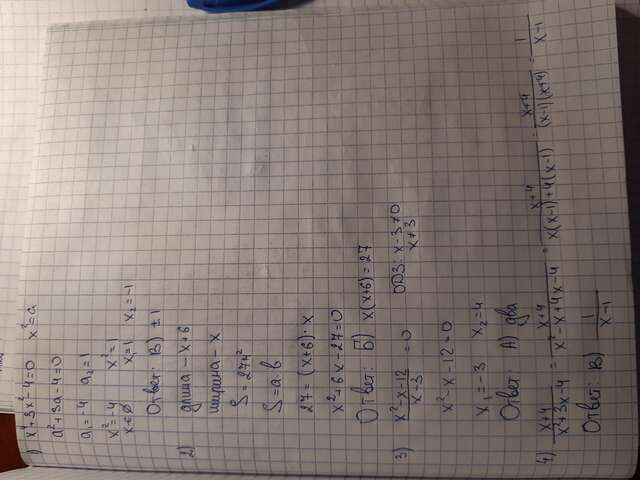 1) x⁴+3x²-4=0 x²=a
a²+3a-4=0
a₁=-4 a₂=1
x²=-4 x²=1
x∈∅ x₁=1 x₂=-1
Ответ: В) ±1
2) длина – x+6
ширина – x
S=27м²
S=a·b
27=(x+6)·x
x²+6x-27=0
Ответ: Б) x(x+6)=27
3) x²-x-12/x-3=0 ОДЗ: x-3≠0
x≠3
x²-x-12=0
x₁=-3 x₂=4
Ответ: А) два
4) x+4/x²+3x-4 = x+4/x²-x+4x-4 = x+4/x(x-1)+4(x-1) = x+4/(x-1)(x+4) = 1/x-1
Ответ: В) 1/x-1